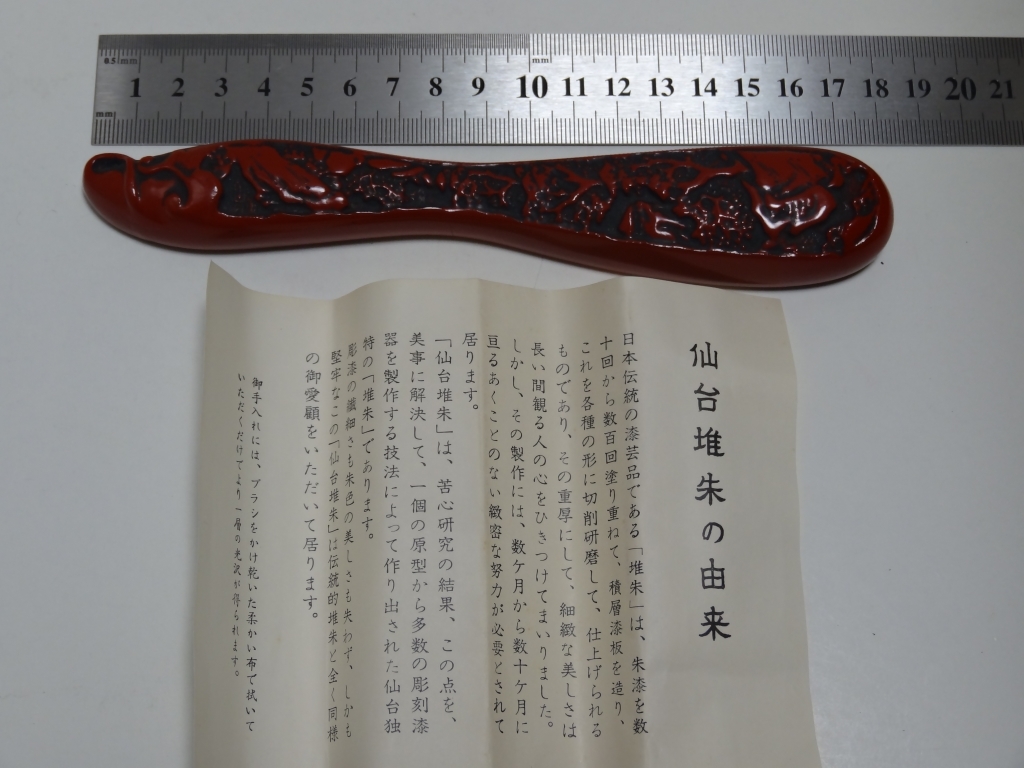 0.5mm
mm
1 2 3 4 5 6 7 8 9 10 11 12 13 14 15 16 17 18 19 20 21
mm
仙台堆朱の由来
日本伝統の漆芸品である「堆朱」は、朱漆を数
十回から数百回塗り重ねて、積層漆板を造り、
これを各種の形に切削研磨して、仕上げられる
ものであり、その重厚にして、細緻な美しさは
長い間観る人の心をひきつけてまいりました。
しかし、その製作には、数ケ月から数十ケ月に
亘るあくことのない緻密な努力が必要とされて
居ります。
「仙台堆朱」は、苦心研究の結果、この点を、
美事に解決して、一個の原型から多数の彫刻漆
器を製作する技法によって作り出された仙台独
特の「堆朱」であります。
彫漆の繊細さも朱色の美しさも失わず、しかも
堅牢なこの「仙台堆朱」は伝統的堆朱と全く同様
の御愛顧をいただいて居ります。
御手入れには、ブラシをかけ乾いた柔かい布で拭いて
いただくだけでより一層の光沢が得られます。